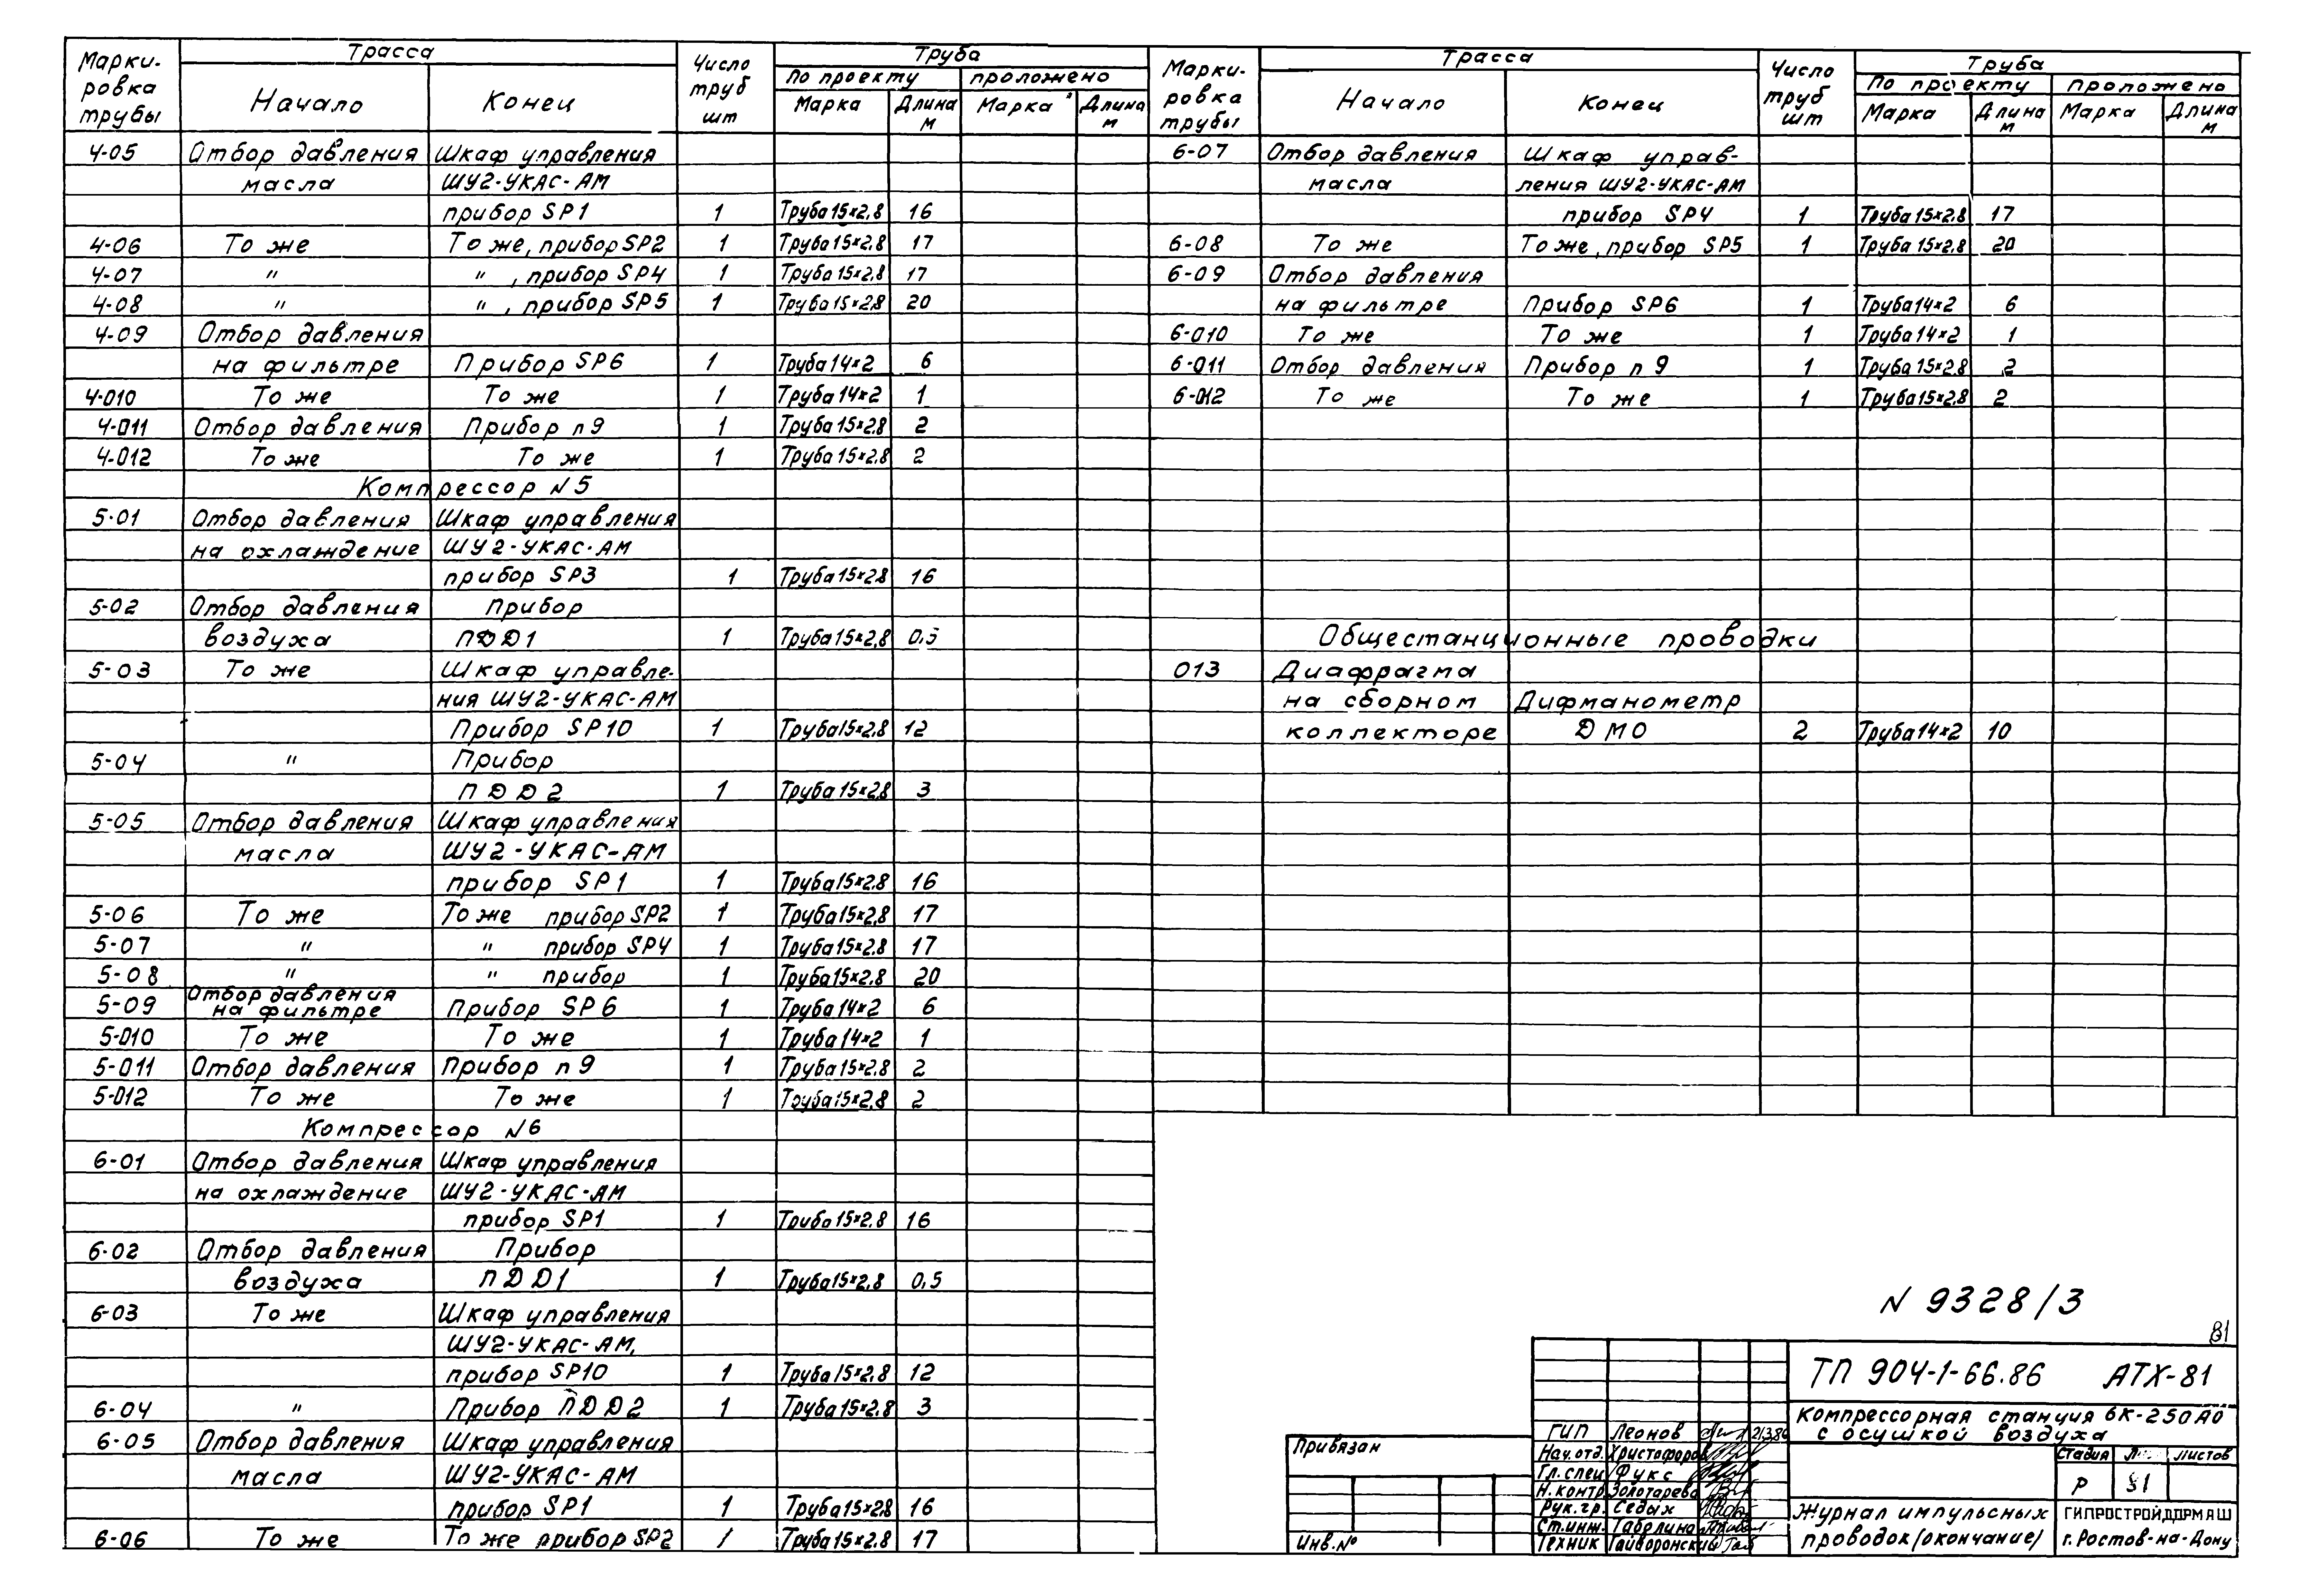 Марки- ровка трубы Трасса Число труб шт Труба
По проекту проложено
Начало Конец Марка Длина м Марка Длина м
4-05 Отбор давления Шкаф управления
масла ШУ2-УКАС-АМ
прибор SP1 1 Труба 15×2,8 16
4-06 То же То же, прибор SP2 1 Труба 15×2,8 17
4-07 " " , прибор SP4 1 Труба 15×2,8 17
4-08 " " , прибор SP5 1 Труба 15×2,8 20
4-09 Отбор давления
на фильтре Прибор SP6 1 Труба 14×2 6
4-010 То же То же 1 Труба 14×2 1
4-011 Отбор давления Прибор п9 1 Труба 15×2,8 2
4-012 То же То же 1 Труба 15×2,8 2
Компрессор N5
5-01 Отбор давления Шкаф управления
на охлаждение ШУ2-УКАС-АМ
прибор SP3 1 Труба 15×2,8 16
5-02 Отбор давления Прибор
воздуха ПДД1 1 Труба 15×2,8 0,5
5-03 То же Шкаф управле-
ния ШУ2-УКАС-АМ
Прибор SP10 1 Труба 15×2,8 12
5-04 " Прибор
ПДД2 1 Труба 15×2,8 3
5-05 Отбор давления Шкаф управления
масла ШУ2-УКАС-АМ
прибор SP1 1 Труба 15×2,8 16
5-06 То же То же прибор SP2 1 Труба 15×2,8 17
5-07 " " прибор SP4 1 Труба 15×2,8 17
5-08 " " прибор 1 Труба 15×2,8 20
5-09 Отбор давления на фильтре Прибор SP6 1 Труба 14×2 6
5-010 То же То же 1 Труба 14×2 1
5-011 Отбор давления Прибор п9 1 Труба 15×2,8 2
5-012 То же То же 1 Труба 15×2,8 2
Компрессор N6
6-01 Отбор давления Шкаф управления
на охлаждение ШУ2-УКАС-АМ
прибор SP1 1 Труба 15×2,8 16
6-02 Отбор давления Прибор
воздуха ПДД1 1 Труба 15×2,8 0,5
6-03 То же Шкаф управления
ШУ2-УКАС-АМ,
прибор SP10 1 Труба 15×2,8 12
6-04 " Прибор ПДД2 1 Труба 15×2,8 3
6-05 Отбор давления Шкаф управления
масла ШУ2-УКАС-АМ
прибор SP1 1 Труба 15×2,8 16
6-06 То же То же прибор SP2 1 Труба 15×2,8 17
Марки- ровка трубы Трасса Число труб шт Труба
По проекту проложено
Начало Конец Марка Длина м Марка Длина м
6-07 Отбор давления Шкаф управ-
масла ления ШУ2-УКАС-АМ
прибор SP4 1 Труба 15×2,8 17
6-08 То же То же, прибор SP5 1 Труба 15×2,8 20
6-09 Отбор давления
на фильтре Прибор SP6 1 Труба 14×2 6
6-010 То же То же 1 Труба 14×2 1
6-011 Отбор давления Прибор п9 1 Труба 15×2,8 2
6-012 То же То же 1 Труба 15×2,8 2
Общестанционные проводки
013 Диафрагма
на сборном Дифманометр
коллекторе ДМО 2 Труба 14×2 10
N 9328/3
81
ТП 904-1-66.86 АТХ-81
Компрессорная станция 6К-250АО
с осушкой воздуха
Стадия Листов
Р 81
Журнал импульсных
проводок (окончание)
ГИПРОСТРОЙДОРМАШ
г. Ростов-на-Дону
ГИП Леонов
Нач.отд. Христофоров
Гл.спец Фукс
Н.контр. Золотарева
Рук.гр. Седых
Ст.инж. Табелина
Техник Гайворонский
Привязан
Инв.№